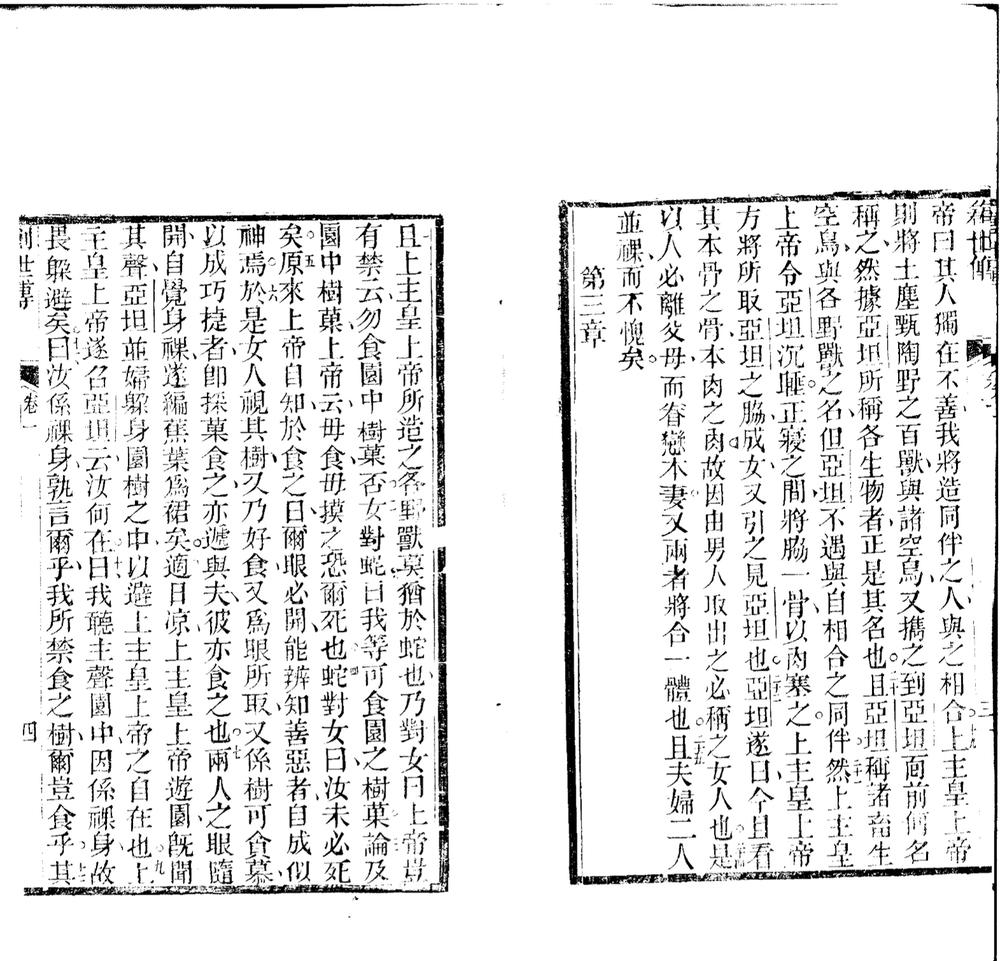 創世傳
三
帝曰其人獨在不善我將造同伴之人與之相合上主皇上帝
則將土塵甄陶野之百獸與諸空鳥又攜之到亞坦面前何名
稱之然據亞坦所稱各生物者正是其名也且亞坦稱諸畜生
空鳥與各野獸之名但亞坦不遇與自相合之同伴然上主皇
上帝令亞坦沉睡正寢之間將脇一骨以肉塞之上主皇上帝
方將所取亞坦之脇成女又引之見亞坦也亞坦遂曰今且看
其本骨之骨本肉之肉故因由男人取出之必稱之女人也是
以人必離父母而眷戀本妻又兩者將合一體也且夫婦二人
並祼而不愧矣
第三章
且上主皇上帝所造之各野獸莫猶於蛇也乃對女曰上帝豈
有禁云勿食園中樹菓否女對蛇曰我等可食園之樹菓論及
園中樹菓上帝云毋食毋摸之恐爾死也蛇對女曰汝未必死
矣原來上帝自知於食之日爾眼必開能辨知善惡者自成似
神焉於是女人視其樹又乃好食又為眼所取又係樹可貪慕
以成巧捷者卽採菓食之亦遞與夫彼亦食之也兩人之眼隨
開自覺身祼遂編蕉葉為裙矣適日凉上主皇上帝遊園旣聞
其聲亞坦並婦躲身園樹之中以避上主皇上帝之自在也上
主皇上帝遂召亞坦云汝何在曰我聽主聲園中因係祼身故
畏躲避矣曰汝係祼身孰言爾乎我所禁食之樹爾豈食乎其
創世傳
卷一
四